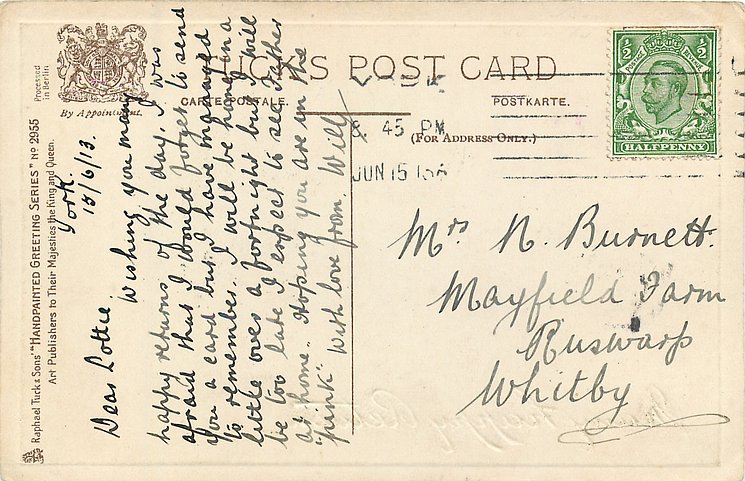 Processed
in Berlin
By Appointment.
Raphael Tuck & Sons "HANDPAINTED GREETING SERIES" Nº 2955
Art Publishers to Their Majesties the King and Queen.
TUCKS POST CARD
CARTE POSTALE.
POSTKARTE.
(FOR ADDRESS ONLY.)
YORK
8 45 PM
JUN 15
½ ½
HALFPENNY
York.
15/6/13.
Dear Lottie.
Wishing you many
happy returns of the day. I was
afraid that I would forget to send
you a card but I have managed
to remember. I will be home in a
little over a fortnight but I will
be too late I expect to see Father
at home. Hoping you are in the
"pink" With love from. Wilf
Mrs N. Burnett.
Mayfield Farm
Ruswarp
Whitby